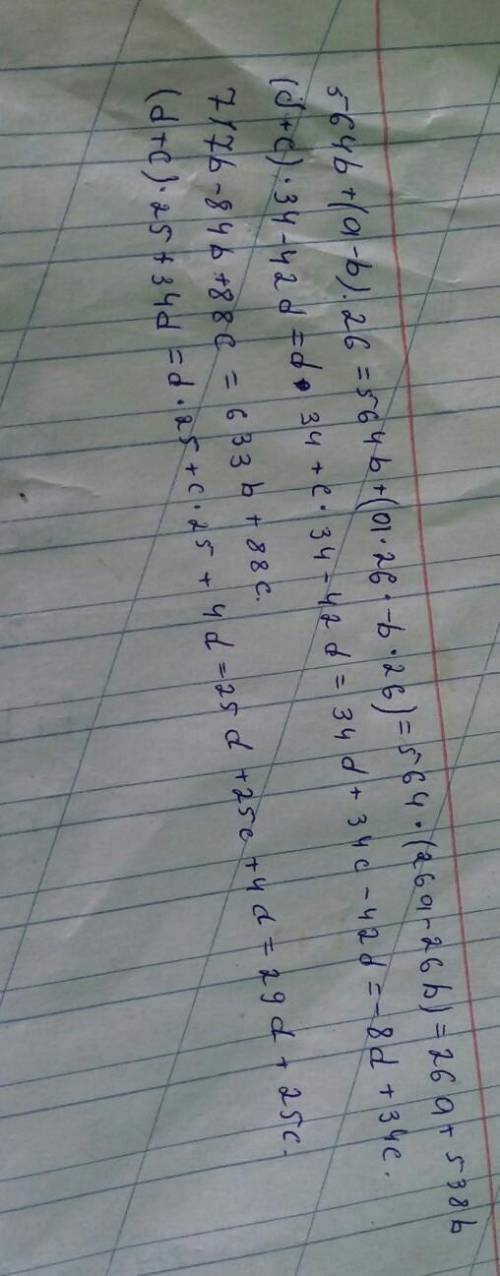 564b+(a-b)·26=564b+(a·26·-b·26)=564·(26a-26b)=26a+538b
(d+c)·34-42d=d·34+c·34-42d=34d+34c-42d=-8d+34c.
717b-84b+88c=633b+88c.
(d+c)·25+34d=d·25+c·25+4d=25d+25c+4d=29d+25c.